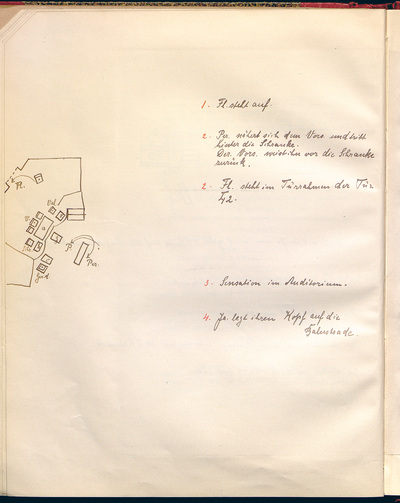 1. Fl. steht auf.
2. Per. nähert sich dem Vors. und tritt
hinter die Schranke.
Der Vors. weist ihn vor die Schranke
zurück.
2. Fl. steht im Türrahmen der Tür
42.
Fl.
Per.
3. Sensation im Auditorium.
4. Ja. legt ihren Kopf auf die
Balustrade.